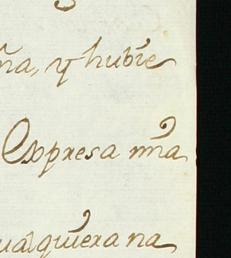 ña, y hubie
Expresa mña
ualquiera na